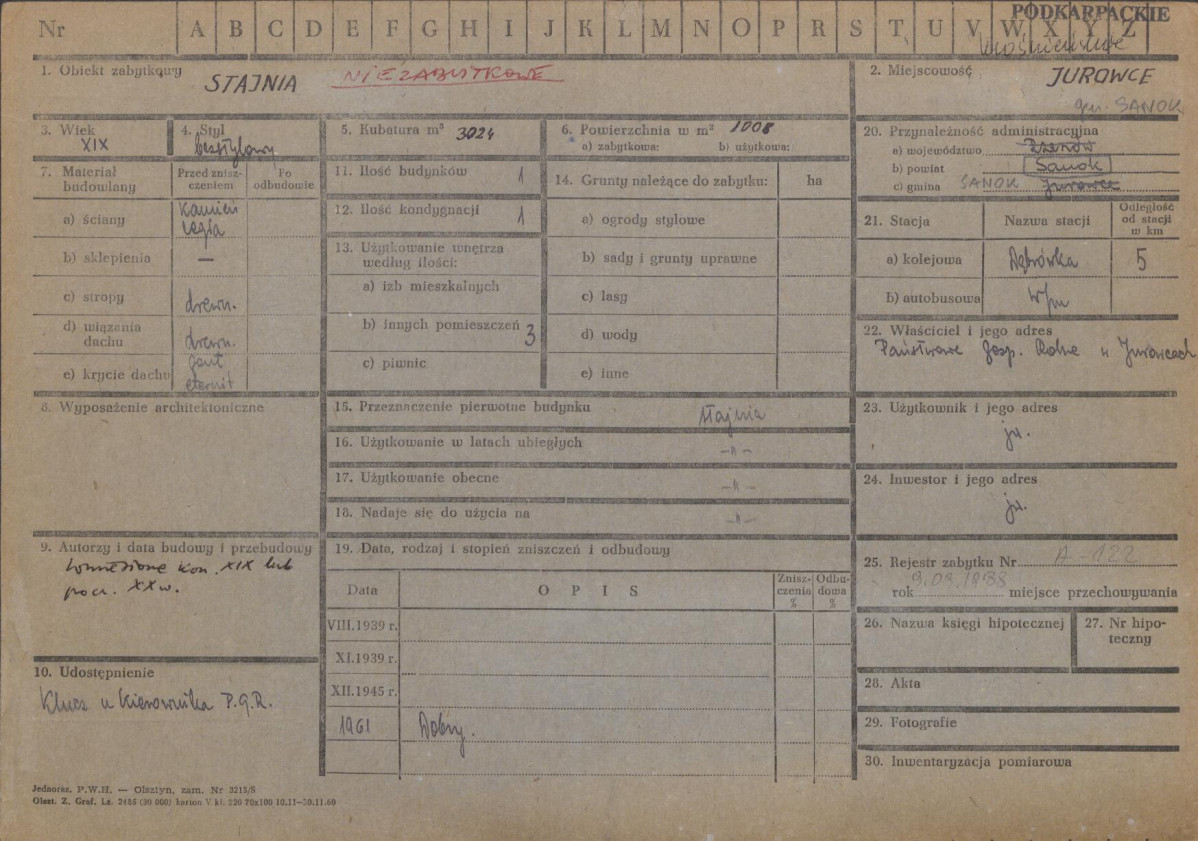 PODKARPACKIE
Nr A B C D E F G H I J K L M N O P R S T U V W X Y Z
1. Obiekt zabytkowy STAJNIA NIEZABYTKOWE
2. Miejscowość JUROWCE
gm. SANOK
3. Wiek XIX
4. Styl bezstylowy
5. Kubatura m³ 3024
6. Powierzchnia w m² 1008
a) zabytkowa: b) użytkowa:
7. Materiał budowlany
Przed zniszczeniem
Po odbudowie
a) ściany kamień cegła
b) sklepienia —
c) stropy drewn.
d) wiązania dachu drewn.
e) krycie dachu gont eternit
8. Wyposażenie architektoniczne
9. Autorzy i data budowy i przebudowy
wzniesione kon. XIX lub
pocz. XX w.
10. Udostępnienie
Klucz u kierownika P.G.R.
11. Ilość budynków 1
12. Ilość kondygnacji 1
13. Użytkowanie wnętrza
według ilości:
a) izb mieszkalnych
b) innych pomieszczeń 3
c) piwnic
14. Grunty należące do zabytku: ha
a) ogrody stylowe
b) sady i grunty uprawne
c) lasy
d) wody
e) inne
15. Przeznaczenie pierwotne budynku stajnia
16. Użytkowanie w latach ubiegłych -"-
17. Użytkowanie obecne -"-
18. Nadaje się do użycia na -"-
19. Data, rodzaj i stopień zniszczeń i odbudowy
Data O P I S Zniszczenia % Odbudowa %
VIII.1939 r.
XI.1939 r.
XII.1945 r.
1961 Dobry.
20. Przynależność administracyjna
a) województwo Rzeszów
b) powiat Sanok
c) gmina SANOK Jurowce
21. Stacja Nazwa stacji Odległość od stacji w km
a) kolejowa Dąbrówka 5
b) autobusowa w/m
22. Właściciel i jego adres
Państwowe Gosp. Rolne w Jurowcach
23. Użytkownik i jego adres
jw.
24. Inwestor i jego adres
jw.
25. Rejestr zabytku Nr A-122
rok miejsce przechowywania
26. Nazwa księgi hipotecznej
27. Nr hipoteczny
28. Akta
29. Fotografie
30. Inwentaryzacja pomiarowa
Jednoraz. P.W.H. — Olsztyn, zam. Nr 3213/S
Olszt. Z. Graf. Lz. 2486 (30 000) karton V kl. 220 70x100 10.11—30.11.60